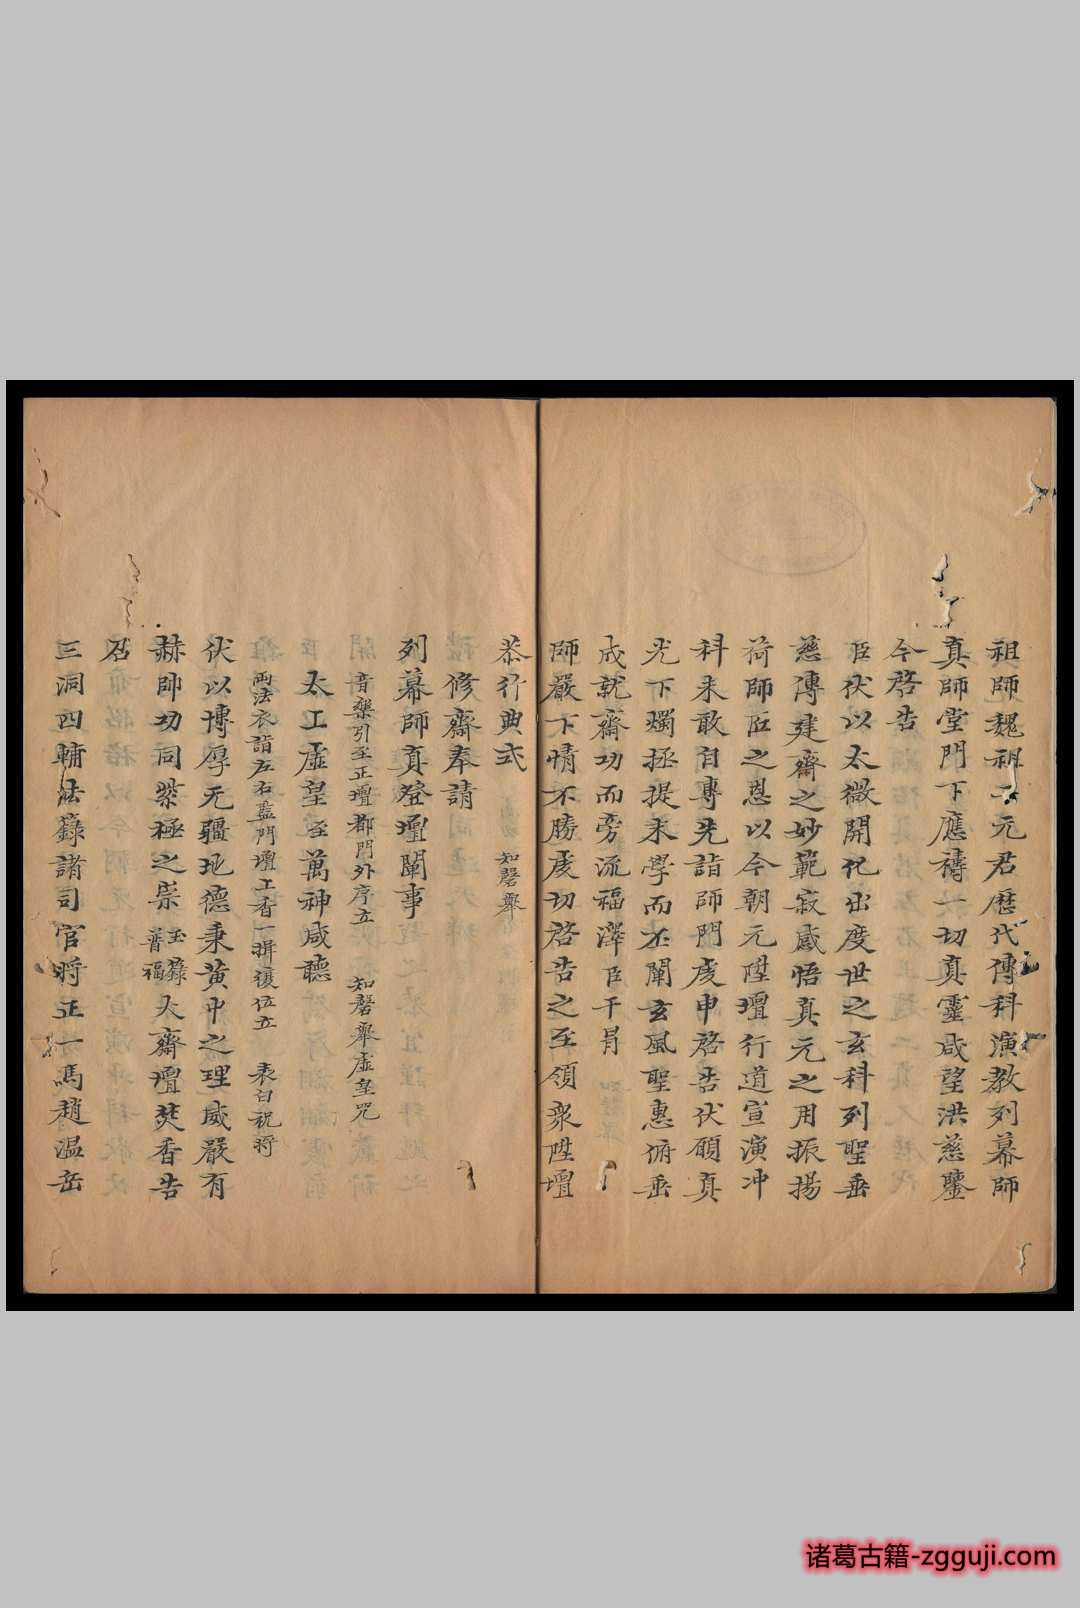 祖師魏祖二元君歷代傳科演教列幕師
真師堂門下應禱一切真靈咸望洪慈鑒
今啓告
臣伏以太微開化出度世之玄科列聖垂
慈傳建齋之妙範寂感悟真元之用振揚
荷師匠之恩以今朝元陞壇行道宣演冲
科未敢自專先詣師門虔申啓告伏願真
光下燭拯提末學而丕闡玄風聖惠俯垂
成就齋功而旁流福澤臣干冐
師嚴下情不勝虔切啓告之至領眾陞壇
恭行典式 知磬舉
修齋奉請
列幕師真登壇闡事
音樂引至正壇都門外序立 知磬舉虛皇咒
太上虛皇至萬神咸聽
兩法衣詣左右盖門壇上香一拼復位立 表白祝將
伏以博厚无疆地德秉黄中之理威嚴有
赫師功同紫極之崇玉籙普福大齋壇焚香告
召
三洞四輔法籙諸司官將正一馮趙温岳
诸葛古籍-zgguji.com